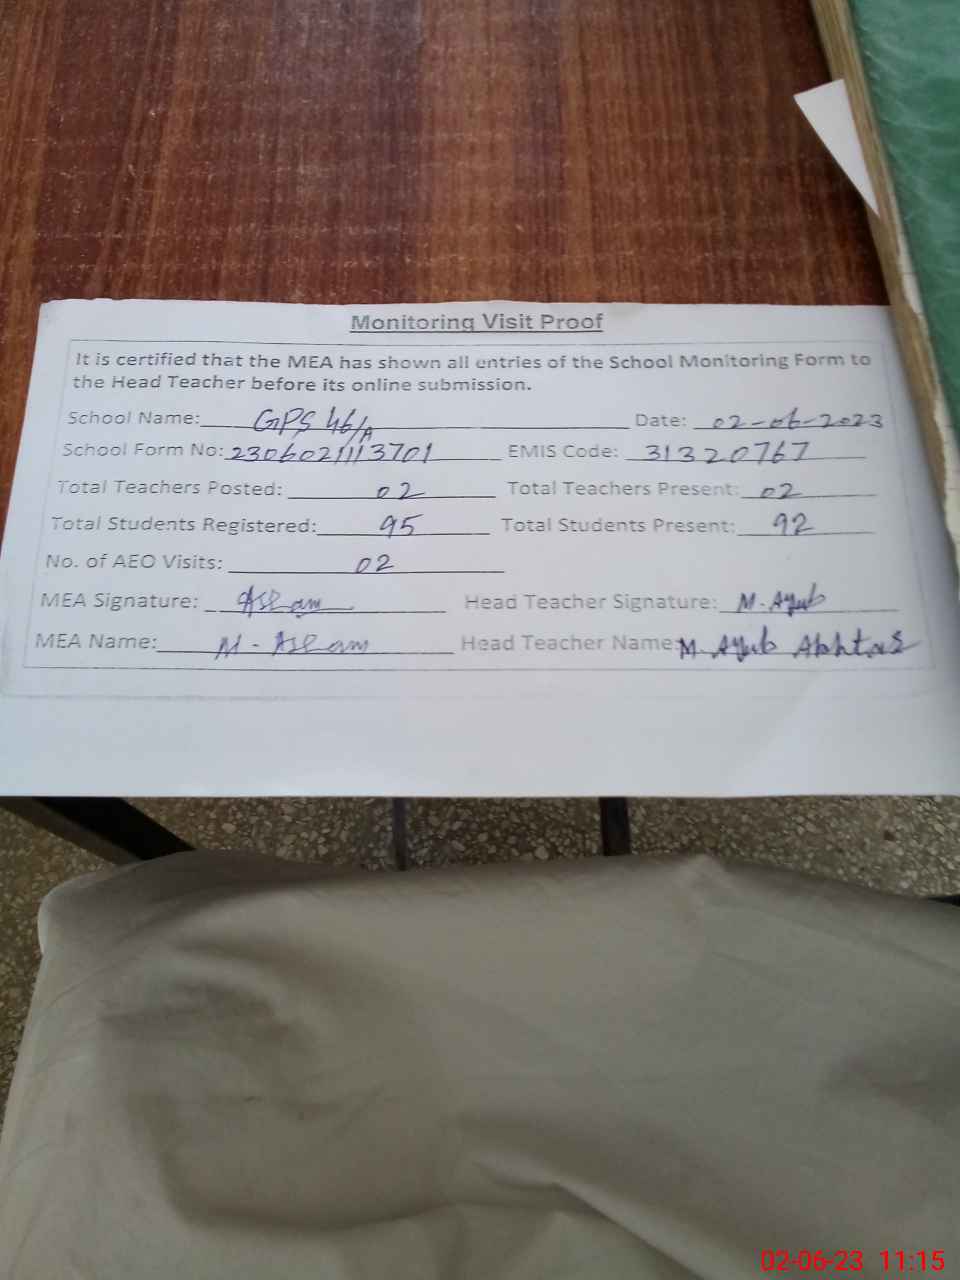 Monitoring Visit Proof
It is certified that the MEA has shown all entries of the School Monitoring Form to
the Head Teacher before its online submission.
School Name: GPS 46/A Date: 02-06-2023
School Form No: 2306021113701 EMIS Code: 31320767
Total Teachers Posted: 02 Total Teachers Present: 02
Total Students Registered: 95 Total Students Present: 92
No. of AEO Visits: 02
MEA Signature: Aslam Head Teacher Signature: M. Ayub
MEA Name: M. Aslam Head Teacher Name: M. Ayub Akhtar
02-06-23 11:15